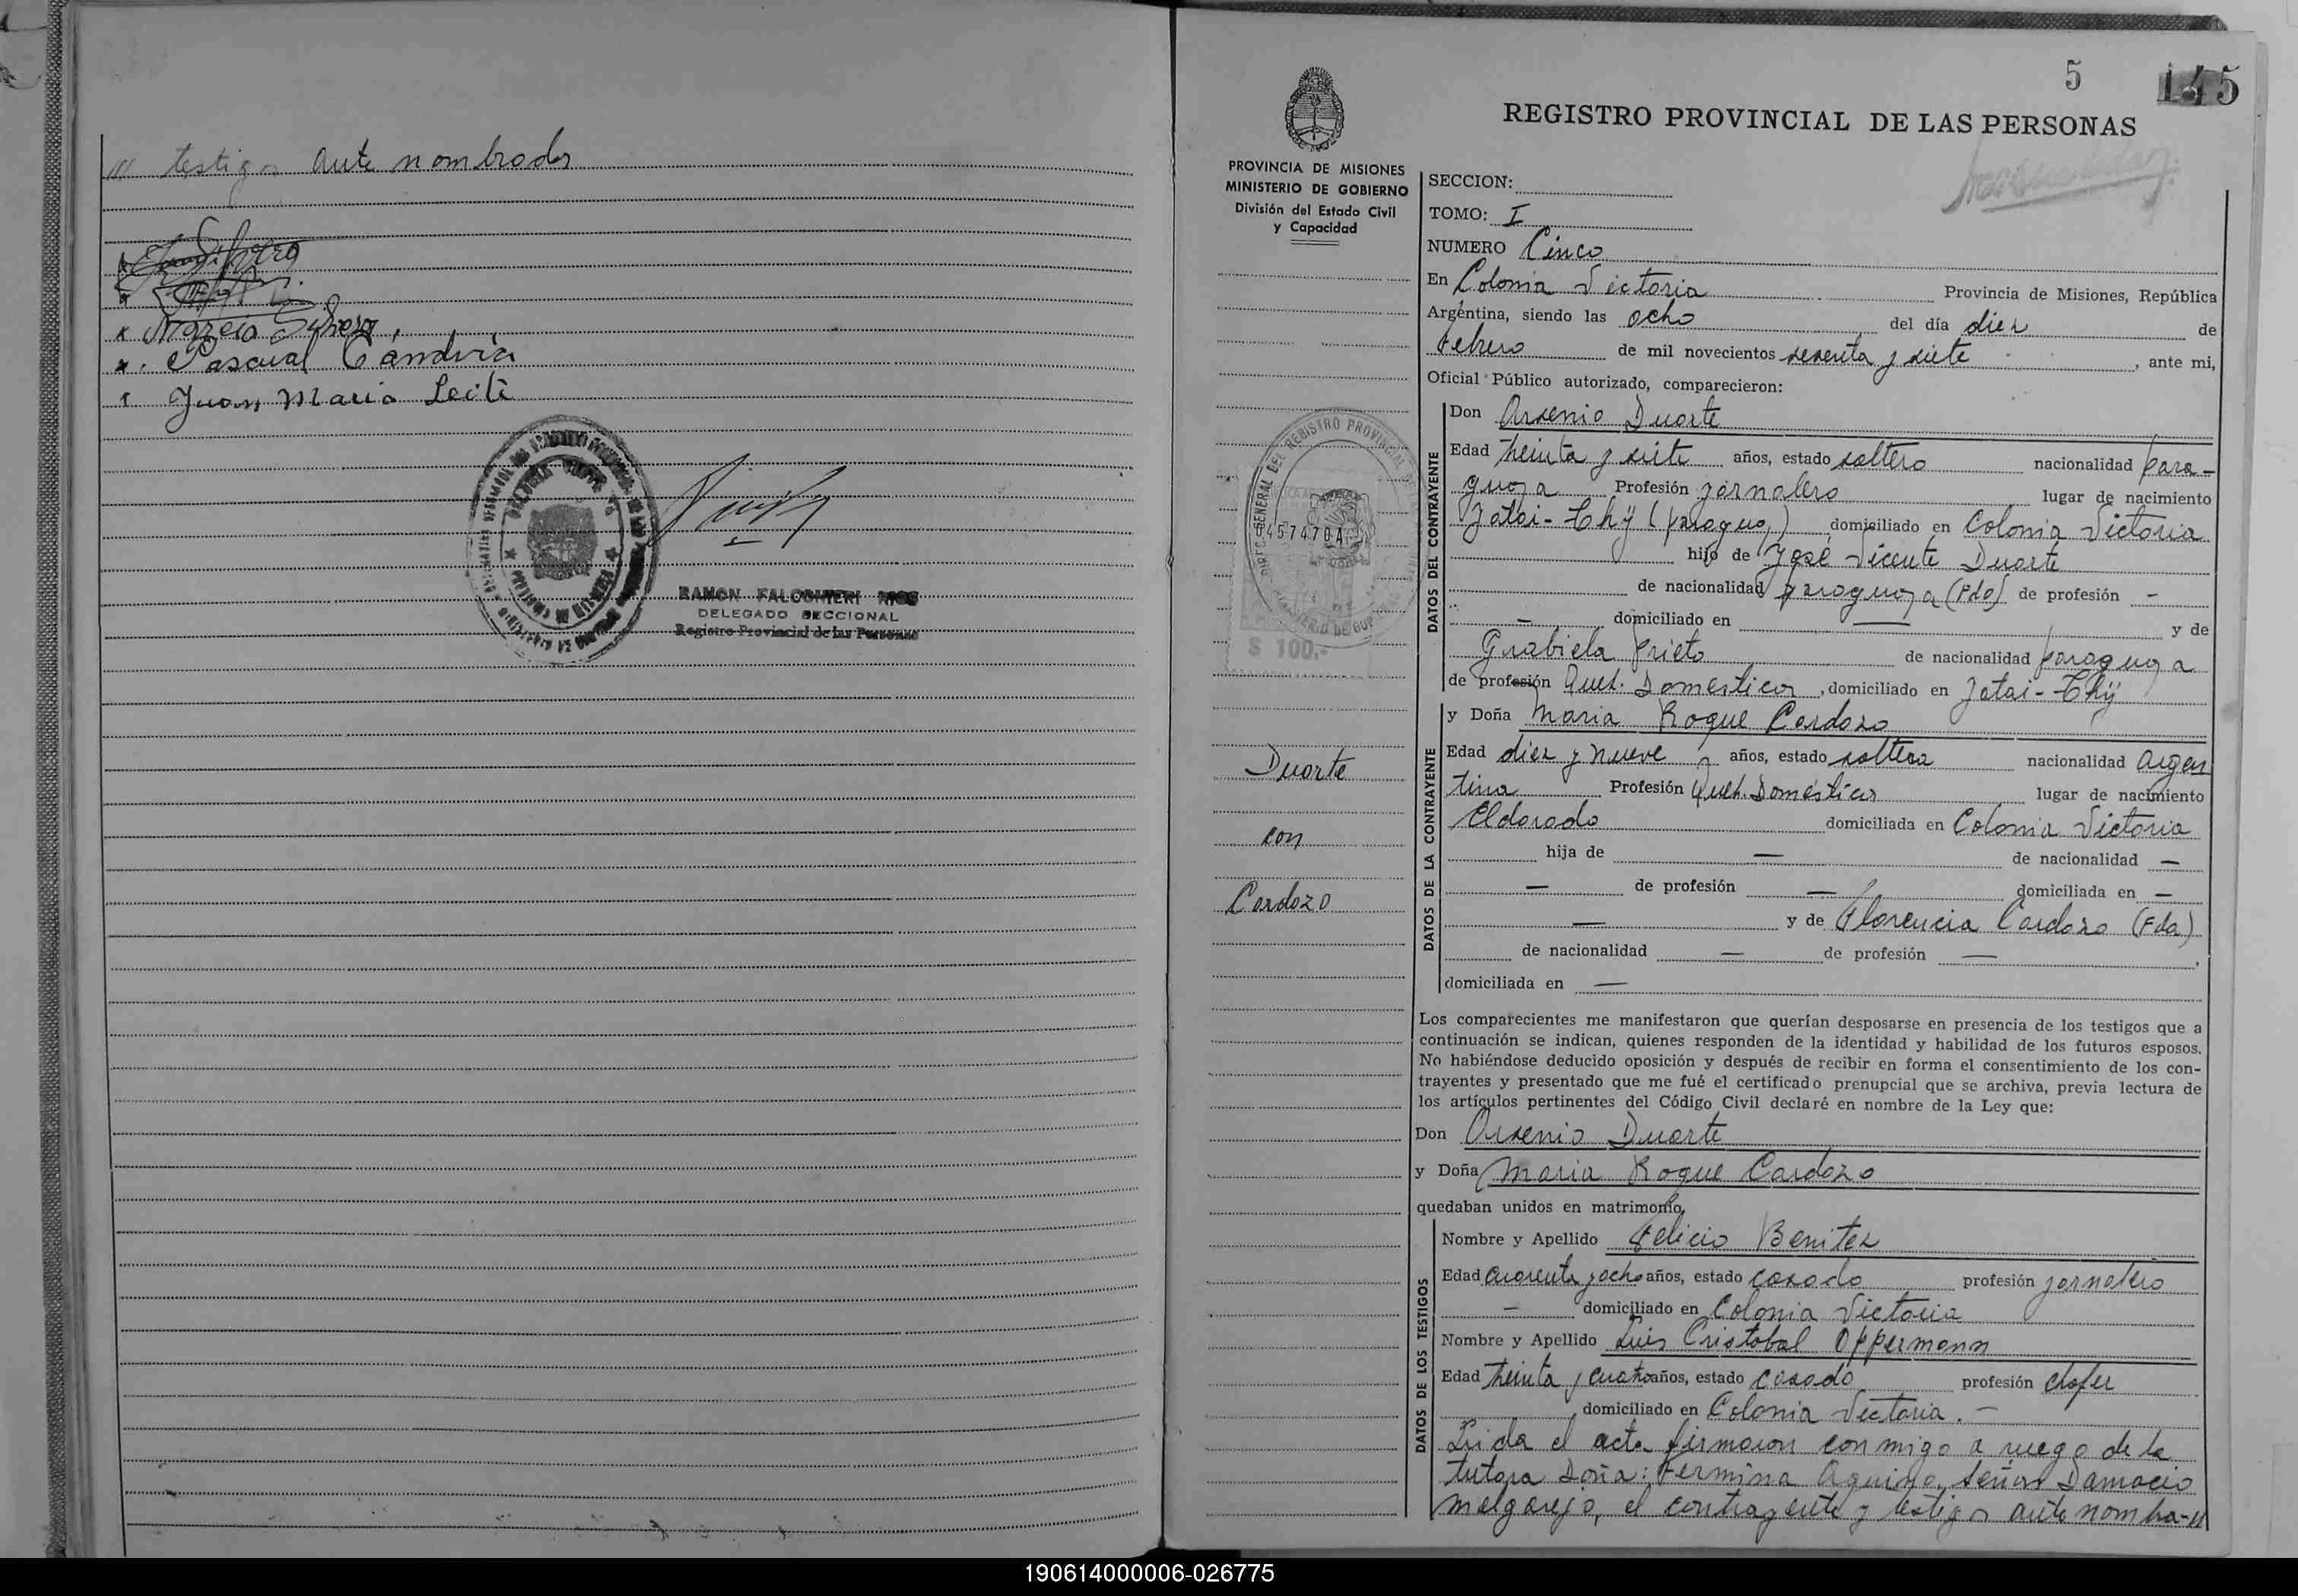 // testigos ante nombrados
Narcio
Pascual Candria
Juan Maria Leite
RAMON FALCONIERI RIOS
DELEGADO SECCIONAL
Registro Provincial de las Personas
5 145
REGISTRO PROVINCIAL DE LAS PERSONAS
PROVINCIA DE MISIONES
MINISTERIO DE GOBIERNO
División del Estado Civil
y Capacidad
457470A
$ 100.-
Duarte
con
Cardozo
SECCION:
TOMO: I
NUMERO Cinco
En Colonia Victoria Provincia de Misiones, República
Argentina, siendo las ocho del día diez de
Febrero de mil novecientos sesenta y siete, ante mi,
Oficial Público autorizado, comparecieron:
DATOS DEL CONTRAYENTE
Don Arsenio Duarte
Edad treinta y siete años, estado soltero nacionalidad para-
guaya Profesión jornalero lugar de nacimiento
Jatai-Thÿ (paraguay) domiciliado en Colonia Victoria
hijo de José Vicente Duarte
de nacionalidad paraguaya (Fdo) de profesión -
- domiciliado en — y de
Grabiela Prieto de nacionalidad paraguaya
de profesión Queh. Domesticos, domiciliado en Jatai-Thÿ
DATOS DE LA CONTRAYENTE
y Doña Maria Roque Cardozo
Edad diez y nueve años, estado soltera nacionalidad Argen
tina Profesión Queh. Domésticos lugar de nacimiento
Eldorado domiciliada en Colonia Victoria
hija de — de nacionalidad —
— de profesión — domiciliada en —
— y de Florencia Cardozo (Fda)
de nacionalidad — de profesión —,
domiciliada en —
Los comparecientes me manifestaron que querían desposarse en presencia de los testigos que a
continuación se indican, quienes responden de la identidad y habilidad de los futuros esposos.
No habiéndose deducido oposición y después de recibir en forma el consentimiento de los con-
trayentes y presentado que me fué el certificado prenupcial que se archiva, previa lectura de
los artículos pertinentes del Código Civil declaré en nombre de la Ley que:
Don Arsenio Duarte
y Doña Maria Roque Cardozo
quedaban unidos en matrimonio.
DATOS DE LOS TESTIGOS
Nombre y Apellido Felicio Benitez
Edad cuarenta y ocho años, estado casado profesión jornalero
— domiciliado en Colonia Victoria
Nombre y Apellido Luis Cristobal Oppermann
Edad treinta y cuatro años, estado casado profesión chofer
domiciliado en Colonia Victoria. —
Leida el acta firmaron conmigo a ruego de la
tutora Doña: Fermina Aquino, señor Damacio
Melgarejo, el contrayente y testigos ante nombra-//
190614000006-026775